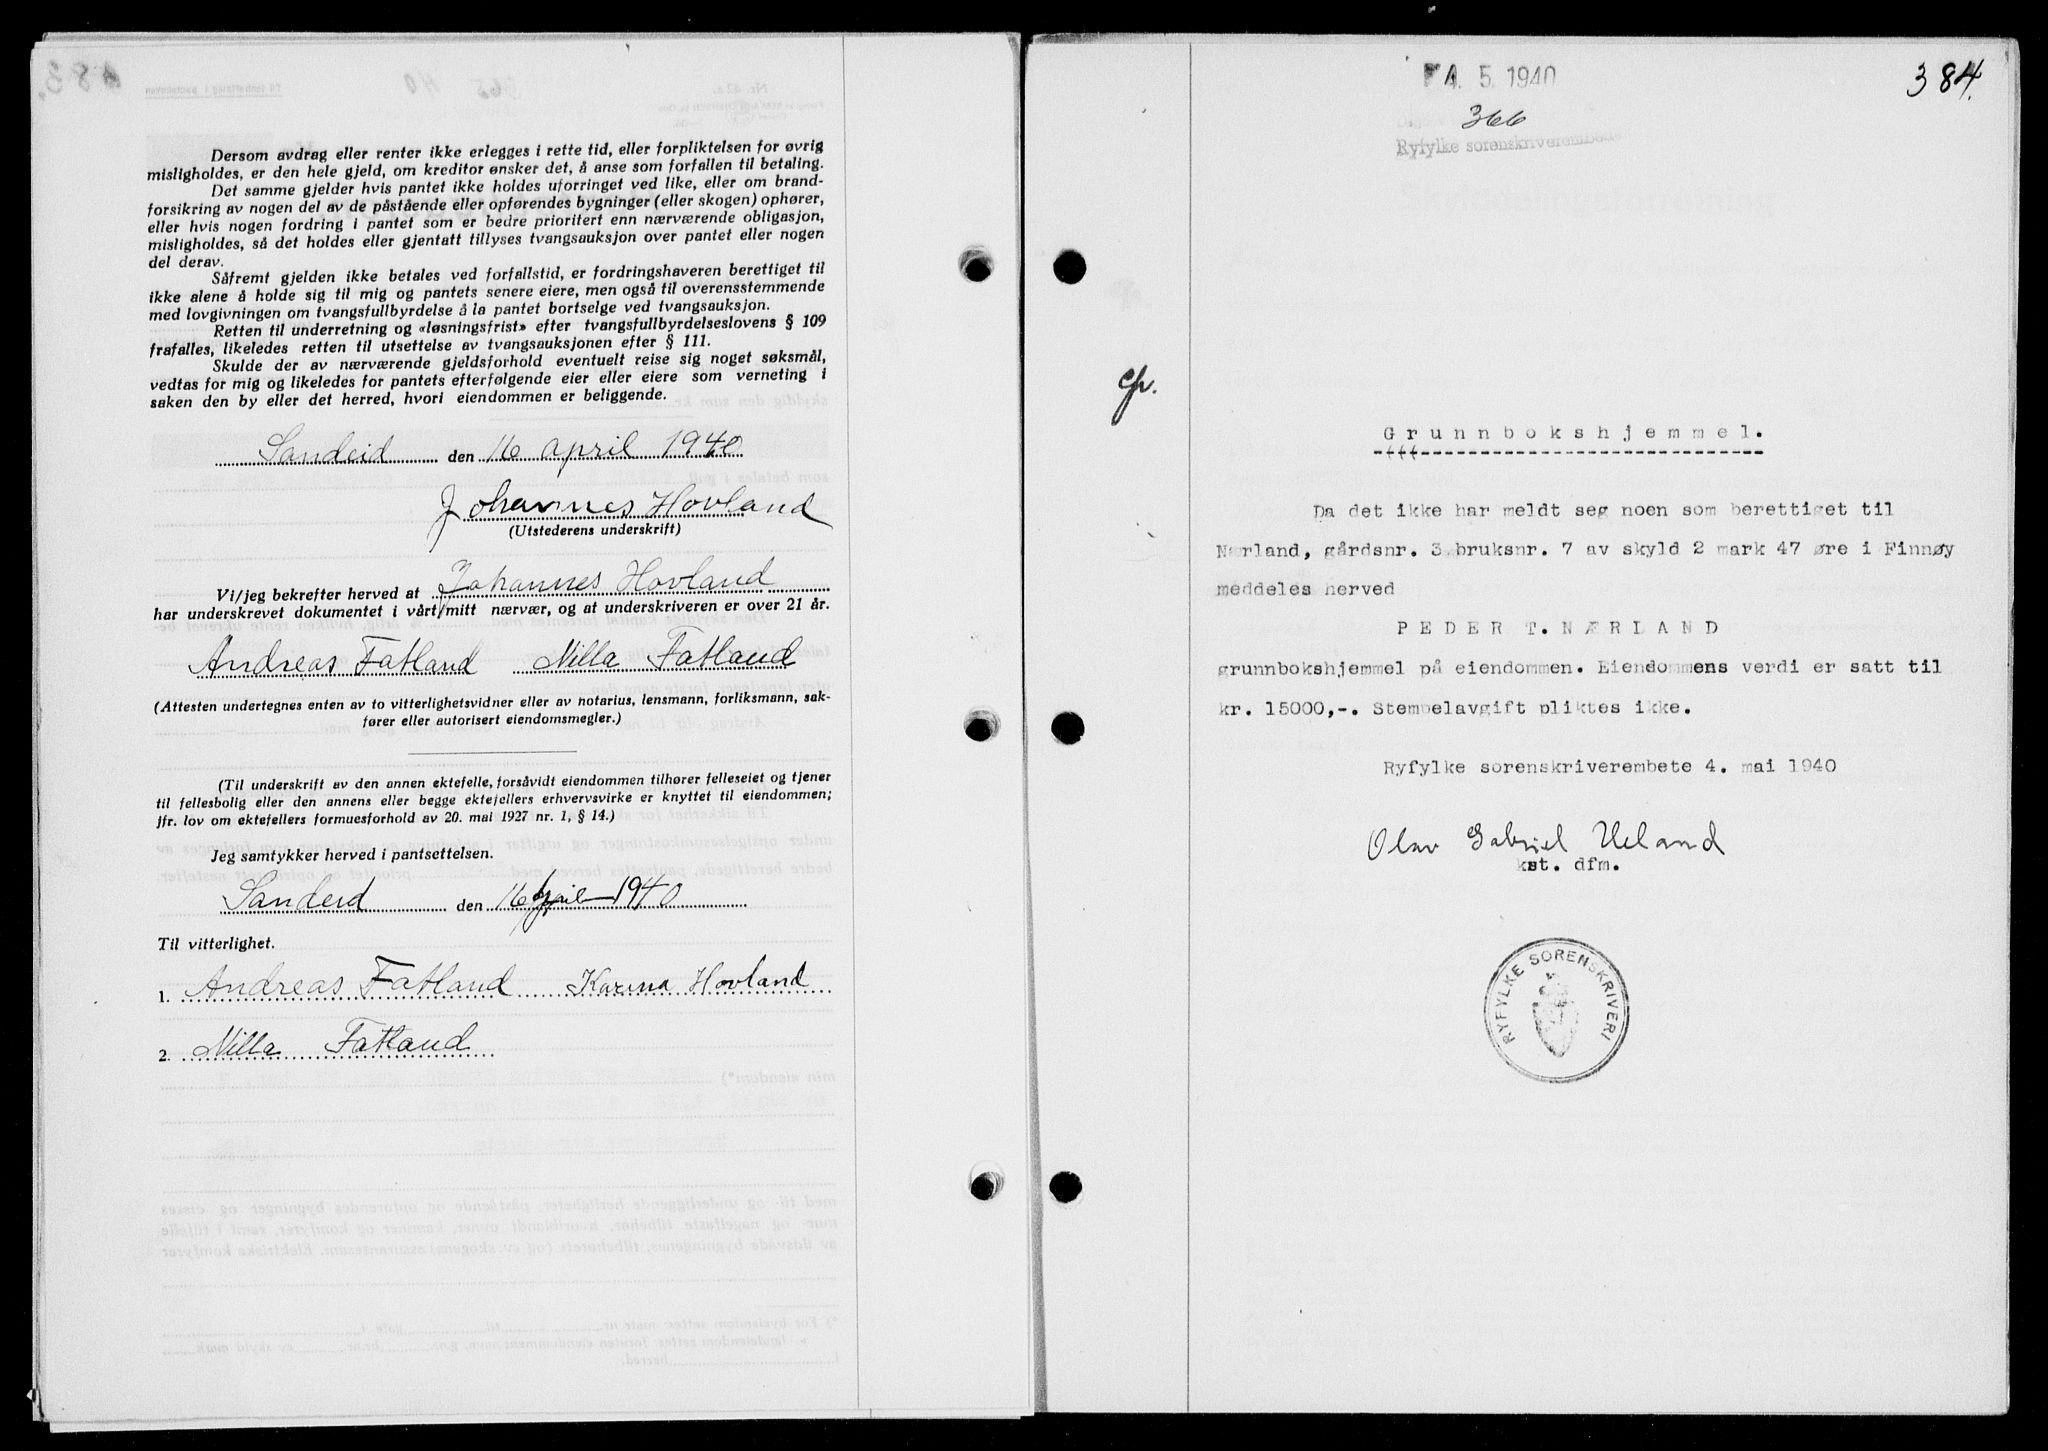 Dersom avdrag eller renter ikke erlegges i rette tid, eller forpliktelsen for øvrig
misligholdes, er den hele gjeld, om kreditor ønsker det, å anse som forfallen til betaling.
Det samme gjelder hvis pantet ikke holdes uforringet ved like, eller om brand-
forsikring av nogen del av de påstående eller opførendes bygninger (eller skogen) ophører,
eller hvis nogen fordring i pantet som er bedre prioritert enn nærværende obligasjon,
misligholdes, så det holdes eller gjentatt tillyses tvangsauksjon over pantet eller nogen
del derav.
Såfremt gjelden ikke betales ved forfallstid, er fordringshaveren berettiget til
ikke alene å holde sig til mig og pantets senere eiere, men også til overensstemmende
med lovgivningen om tvangsfullbyrdelse å la pantet bortselge ved tvangsauksjon.
Retten til underretning og «løsningsfrist» efter tvangsfullbyrdelseslovens § 109
frafalles, likeledes retten til utsettelse av tvangsauksjonen efter § 111.
Skulde der av nærværende gjeldsforhold eventuelt reise sig noget søksmål,
vedtas for mig og likeledes for pantets efterfølgende eier eller eiere som verneting i
saken den by eller det herred, hvori eiendommen er beliggende.
Sandeid den 16 april 1940
Johannes Hovland
(Utstederens underskrift)
Vi/jeg bekrefter herved at Johannes Hovland
har underskrevet dokumentet i vårt/mitt nærvær, og at underskriveren er over 21 år.
Andreas Fatland Milla Fatland
(Attesten undertegnes enten av to vitterlighetsvidner eller av notarius, lensmann, forliksmann, sak-
fører eller autorisert eiendomsmegler.)
(Til underskrift av den annen ektefelle, forsåvidt eiendommen tilhører felleseiet og tjener
til fellesbolig eller den annens eller begge ektefellers erhvervsvirke er knyttet til eiendommen;
jfr. lov om ektefellers formuesforhold av 20. mai 1927 nr. 1, § 14.)
Jeg samtykker herved i pantsettelsen.
Sandeid den 16 April 1940
Til vitterlighet.
1. Andreas Fatland Karina Hovland
2. Milla Fatland
4. 5. 1940
384.
366
Ryfylke sorenskriverembete
Grunnbokshjemmel.
Da det ikke har meldt seg noen som berettiget til
Nærland, gårdsnr. 3 bruksnr. 7 av skyld 2 mark 47 øre i Finnøy
meddeles herved
PEDER T. NÆRLAND
grunnbokshjemmel på eiendommen. Eiendommens verdi er satt til
kr. 15000,-. Stempelavgift pliktes ikke.
Ryfylke sorenskriverembete 4. mai 1940
Olav Gabriel Ueland
kst. dfm.
RYFYLKE SORENSKRIVERI